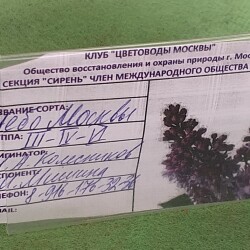 КЛУБ "ЦВЕТОВОДЫ МОСКВЫ"
Общество восстановления и охраны природы г. Моск
СЕКЦИЯ "СИРЕНЬ" ЧЛЕН МЕЖДУНАРОДНОГО ОБЩЕСТВА
ЗВАНИЕ СОРТА:
Небо Москвы
ППА: III-IV-VI
ИГИНАТОР:
Колесников
СПОНЕНТ
Мишина
ЛЕФОН: 8-916-176-32-36
MAIL: